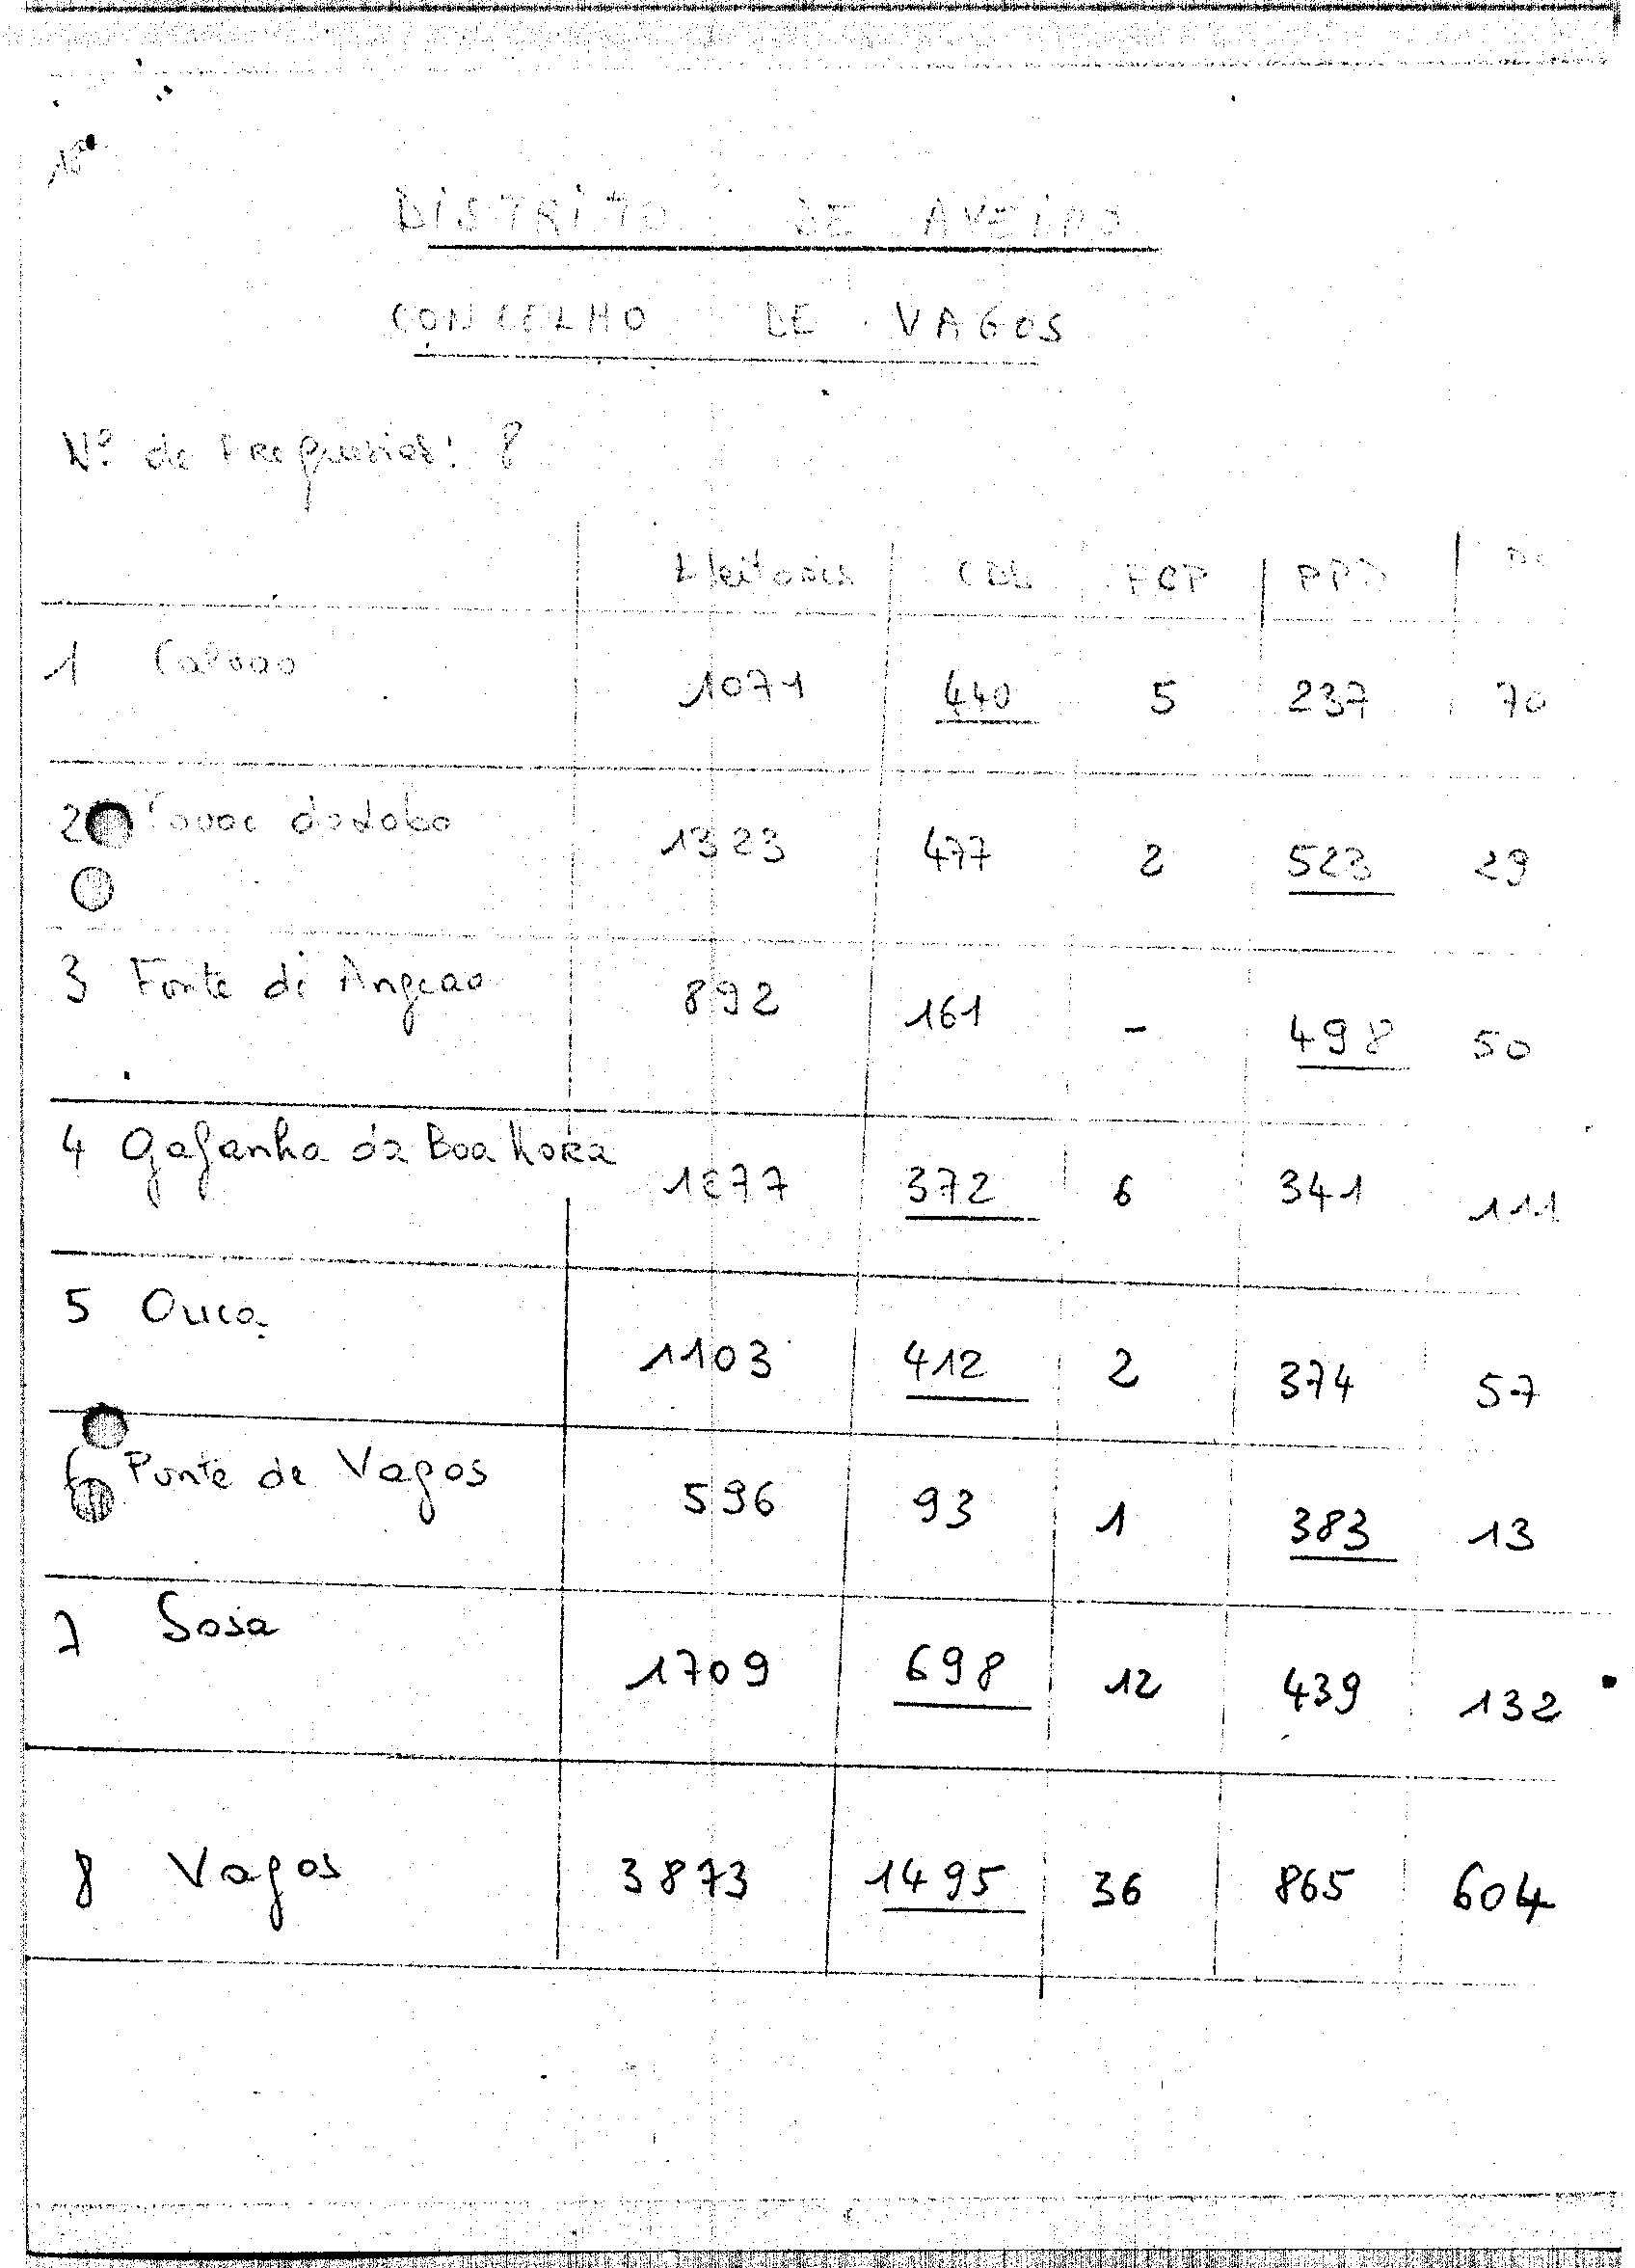 DISTRITO DE AVEIRO
CONCELHO DE VAGOS
Nº de Freguesias: 8
Eleitores CDS PCP PPD
1 Calvao 1071 440 5 237 70
2 Covao do Lobo 1323 477 2 523 29
3 Fonte de Angeao 892 161 - 498 50
4 Gafanha da Boa Hora 372 6 341 111
5 Ouca 1103 412 2 374 57
6 Ponte de Vagos 596 93 1 383 13
7 Sosa 1709 698 12 439 132
8 Vagos 3873 1495 36 865 604